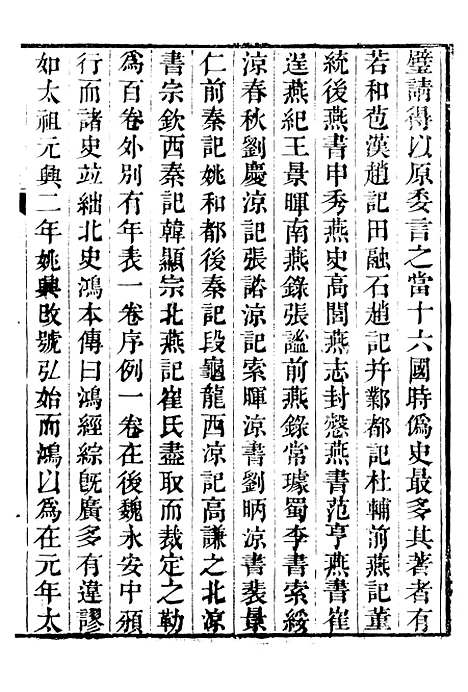 璧請得以原委言之當十六國時僞史最多其著者有
若和苞漢趙記田融石趙記并鄴都記杜輔前燕記董
統後燕書申秀燕史高閭燕志封慤燕書范亨燕書崔
逞燕紀王景暉南燕錄張謐前燕錄常璩蜀李書索綏
涼春秋劉慶涼記張諮涼記索暉涼書劉昞涼書裴景
仁前秦記姚和都後秦記段龜龍西涼記高謙之北涼
書宗欽西秦記韓顯宗北燕記崔氏盡取而裁定之勒
爲百卷外別有年表一卷序例一卷在後魏永安中頒
行而諸史並絀北史鴻本傳曰鴻經綜旣廣多有違謬
如太祖元興二年姚興改號弘始而鴻以爲在元年太